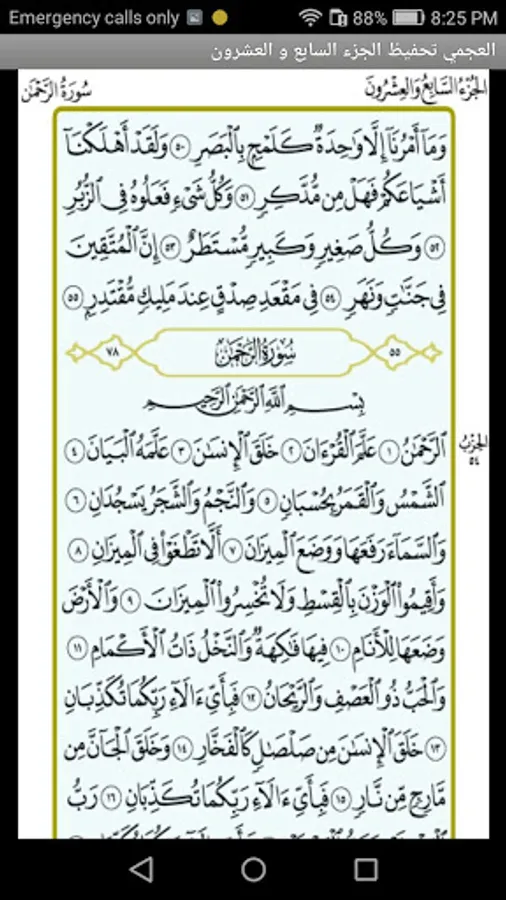 Emergency calls only 88% 8:25 PM
العجمي تحفيظ الجزء السابع و العشرون
الجُزْءُ السَّابِعُ وَالعِشْرُونَ سُورَةُ الرَّحْمَٰن
وَمَآ أَمْرُنَآ إِلَّا وَٰحِدَةٌ كَلَمْحٍۭ بِٱلْبَصَرِ ٥٠ وَلَقَدْ أَهْلَكْنَآ
أَشْيَاعَكُمْ فَهَلْ مِن مُّدَّكِرٍ ٥١ وَكُلُّ شَىْءٍ فَعَلُوهُ فِى ٱلزُّبُرِ
٥٢ وَكُلُّ صَغِيرٍ وَكَبِيرٍ مُّسْتَطَرٌ ٥٣ إِنَّ ٱلْمُتَّقِينَ
فِى جَنَّٰتٍ وَنَهَرٍ ٥٤ فِى مَقْعَدِ صِدْقٍ عِندَ مَلِيكٍ مُّقْتَدِرٍۭ ٥٥
٥٥ سُورَةُ الرَّحْمَٰن ٧٨
بِسْمِ ٱللَّهِ ٱلرَّحْمَٰنِ ٱلرَّحِيمِ
ٱلرَّحْمَٰنُ ١ عَلَّمَ ٱلْقُرْءَانَ ٢ خَلَقَ ٱلْإِنسَٰنَ ٣ عَلَّمَهُ ٱلْبَيَانَ ٤
الحِزْبُ
٥٤
ٱلشَّمْسُ وَٱلْقَمَرُ بِحُسْبَانٍ ٥ وَٱلنَّجْمُ وَٱلشَّجَرُ يَسْجُدَانِ ٦
وَٱلسَّمَآءَ رَفَعَهَا وَوَضَعَ ٱلْمِيزَانَ ٧ أَلَّا تَطْغَوْا۟ فِى ٱلْمِيزَانِ ٨
وَأَقِيمُوا۟ ٱلْوَزْنَ بِٱلْقِسْطِ وَلَا تُخْسِرُوا۟ ٱلْمِيزَانَ ٩ وَٱلْأَرْضَ
وَضَعَهَا لِلْأَنَامِ ١٠ فِيهَا فَٰكِهَةٌ وَٱلنَّخْلُ ذَاتُ ٱلْأَكْمَامِ ١١
وَٱلْحَبُّ ذُو ٱلْعَصْفِ وَٱلرَّيْحَانُ ١٢ فَبِأَىِّ ءَالَآءِ رَبِّكُمَا تُكَذِّبَانِ
١٣ خَلَقَ ٱلْإِنسَٰنَ مِن صَلْصَٰلٍ كَٱلْفَخَّارِ ١٤ وَخَلَقَ ٱلْجَآنَّ مِن
مَّارِجٍ مِّن نَّارٍ ١٥ فَبِأَىِّ ءَالَآءِ رَبِّكُمَا تُكَذِّبَانِ ١٦ رَبُّ